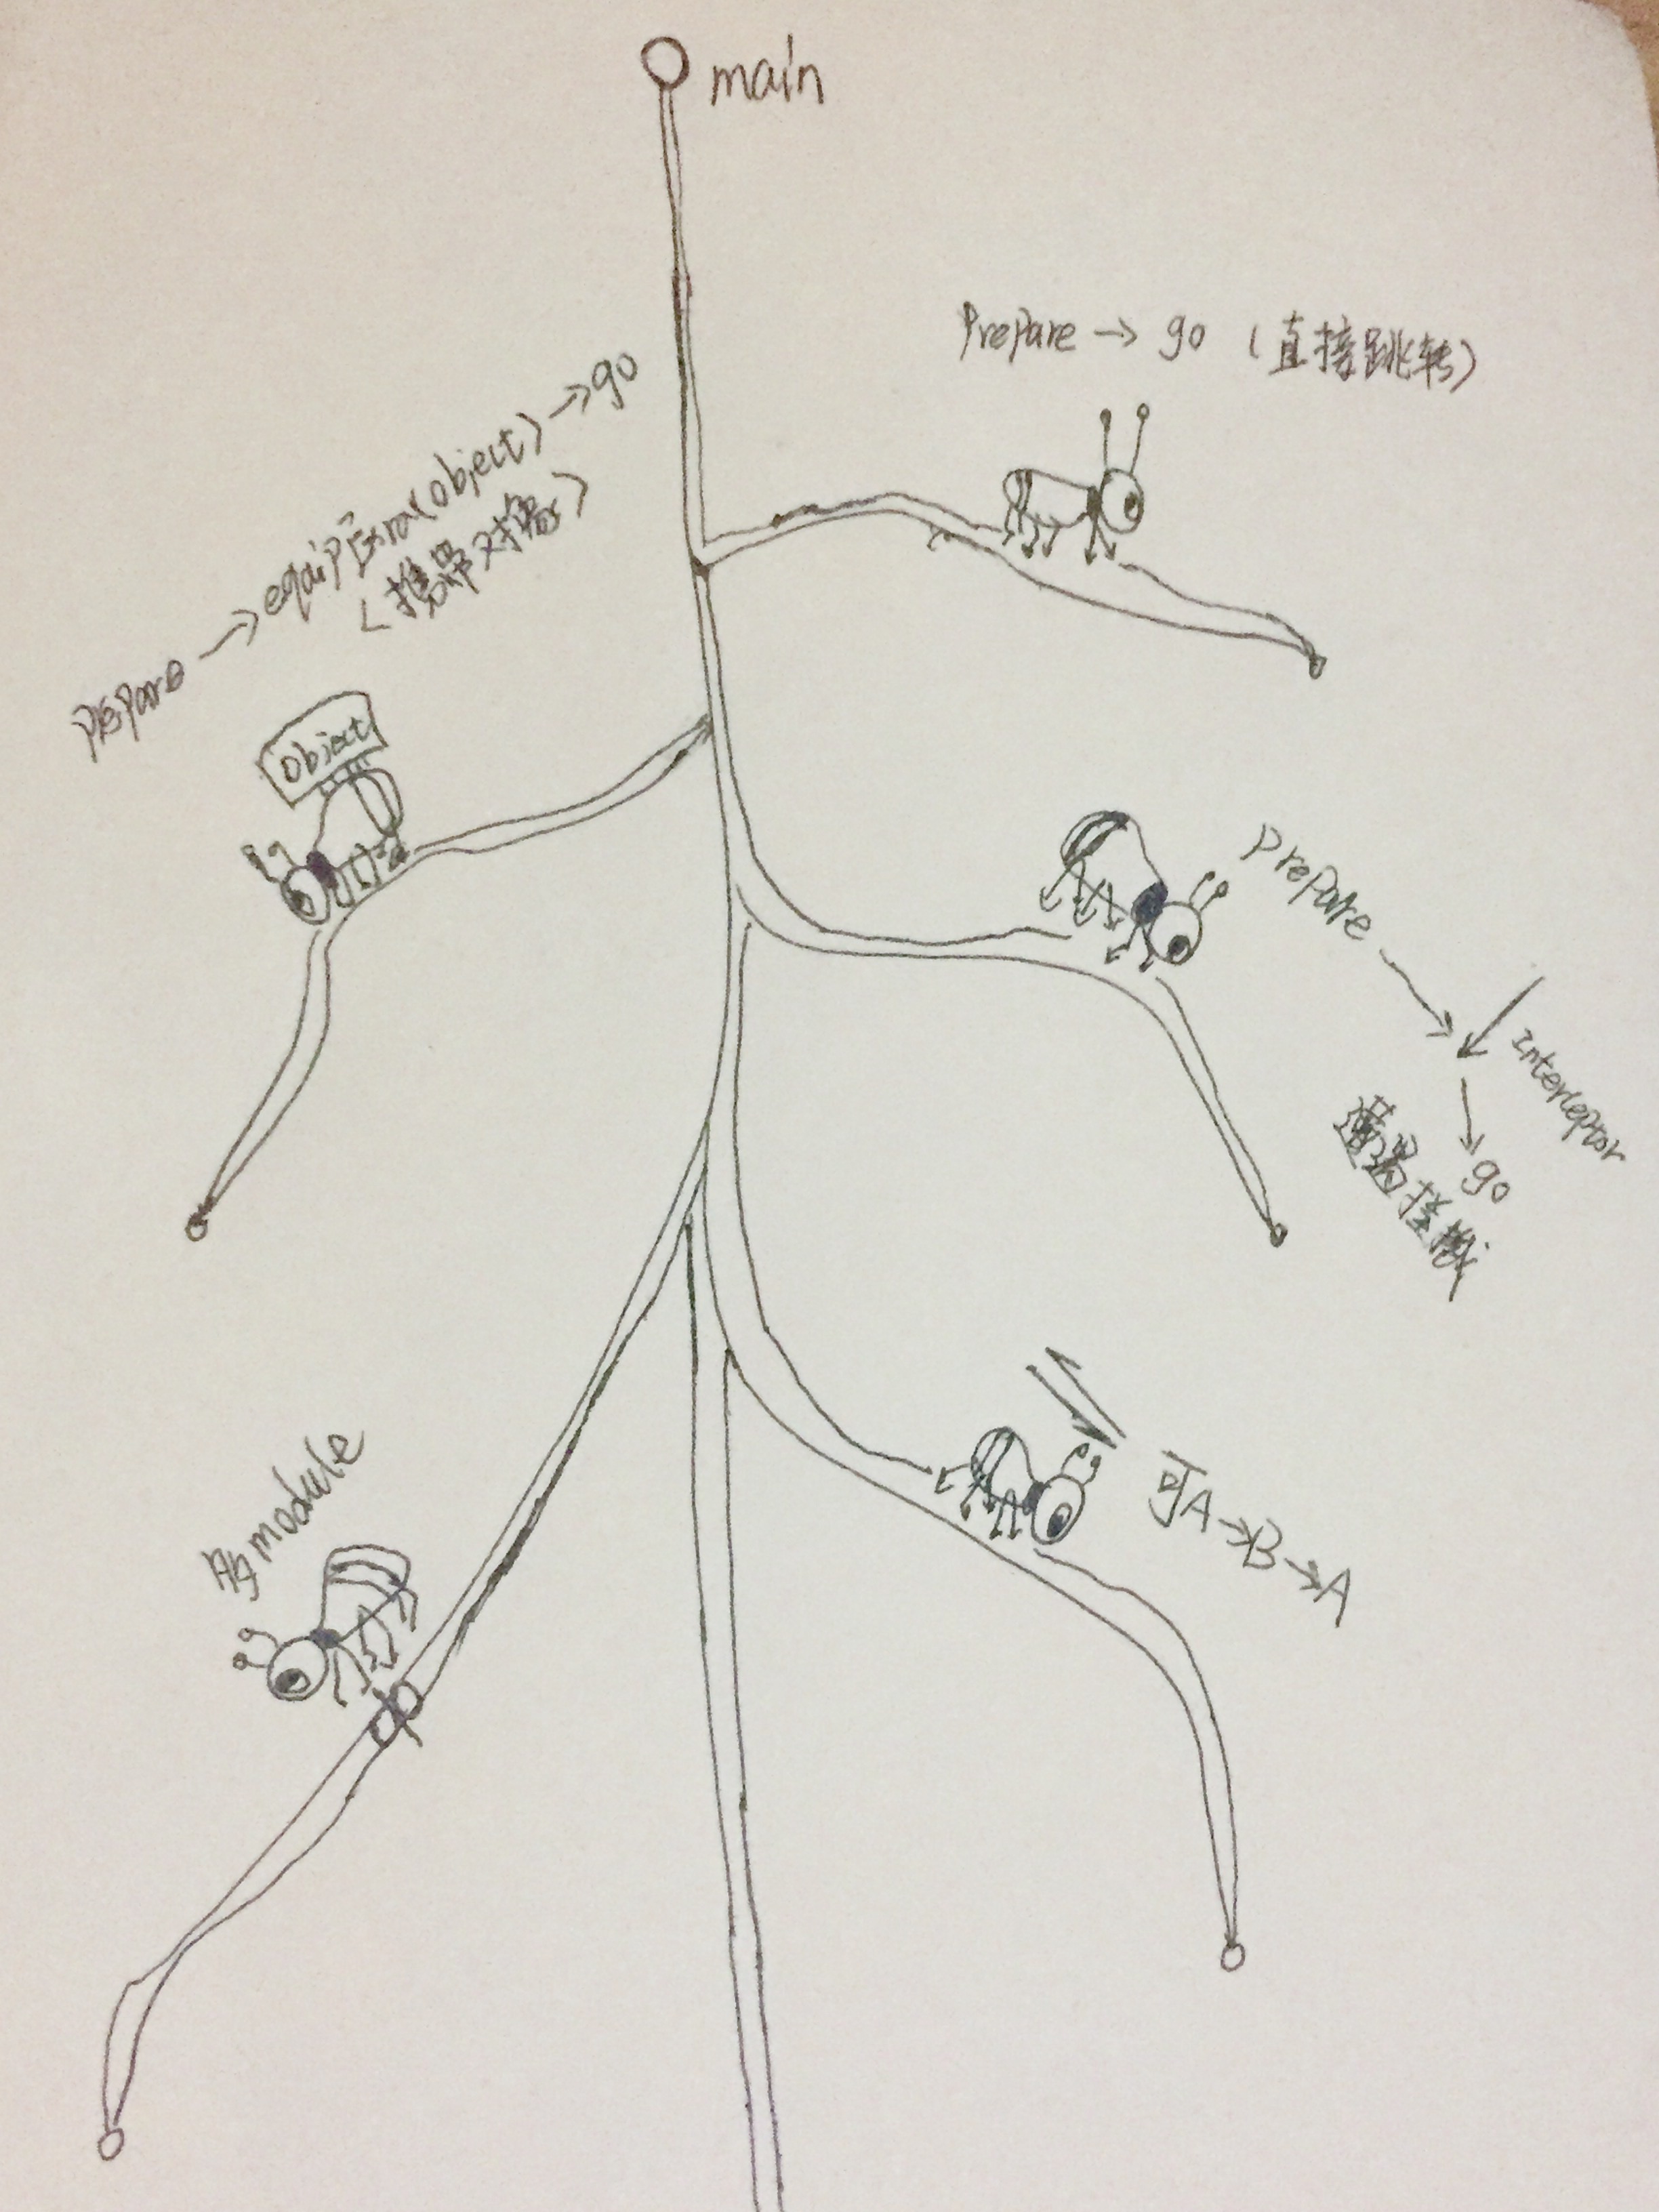 main
Prepare → go (直接跳转)
prepare → equipExra(object) → go
<携带对像>
object
prepare → ↓ → go
Interceptor
遭遇拦截
可A→B→A
多module